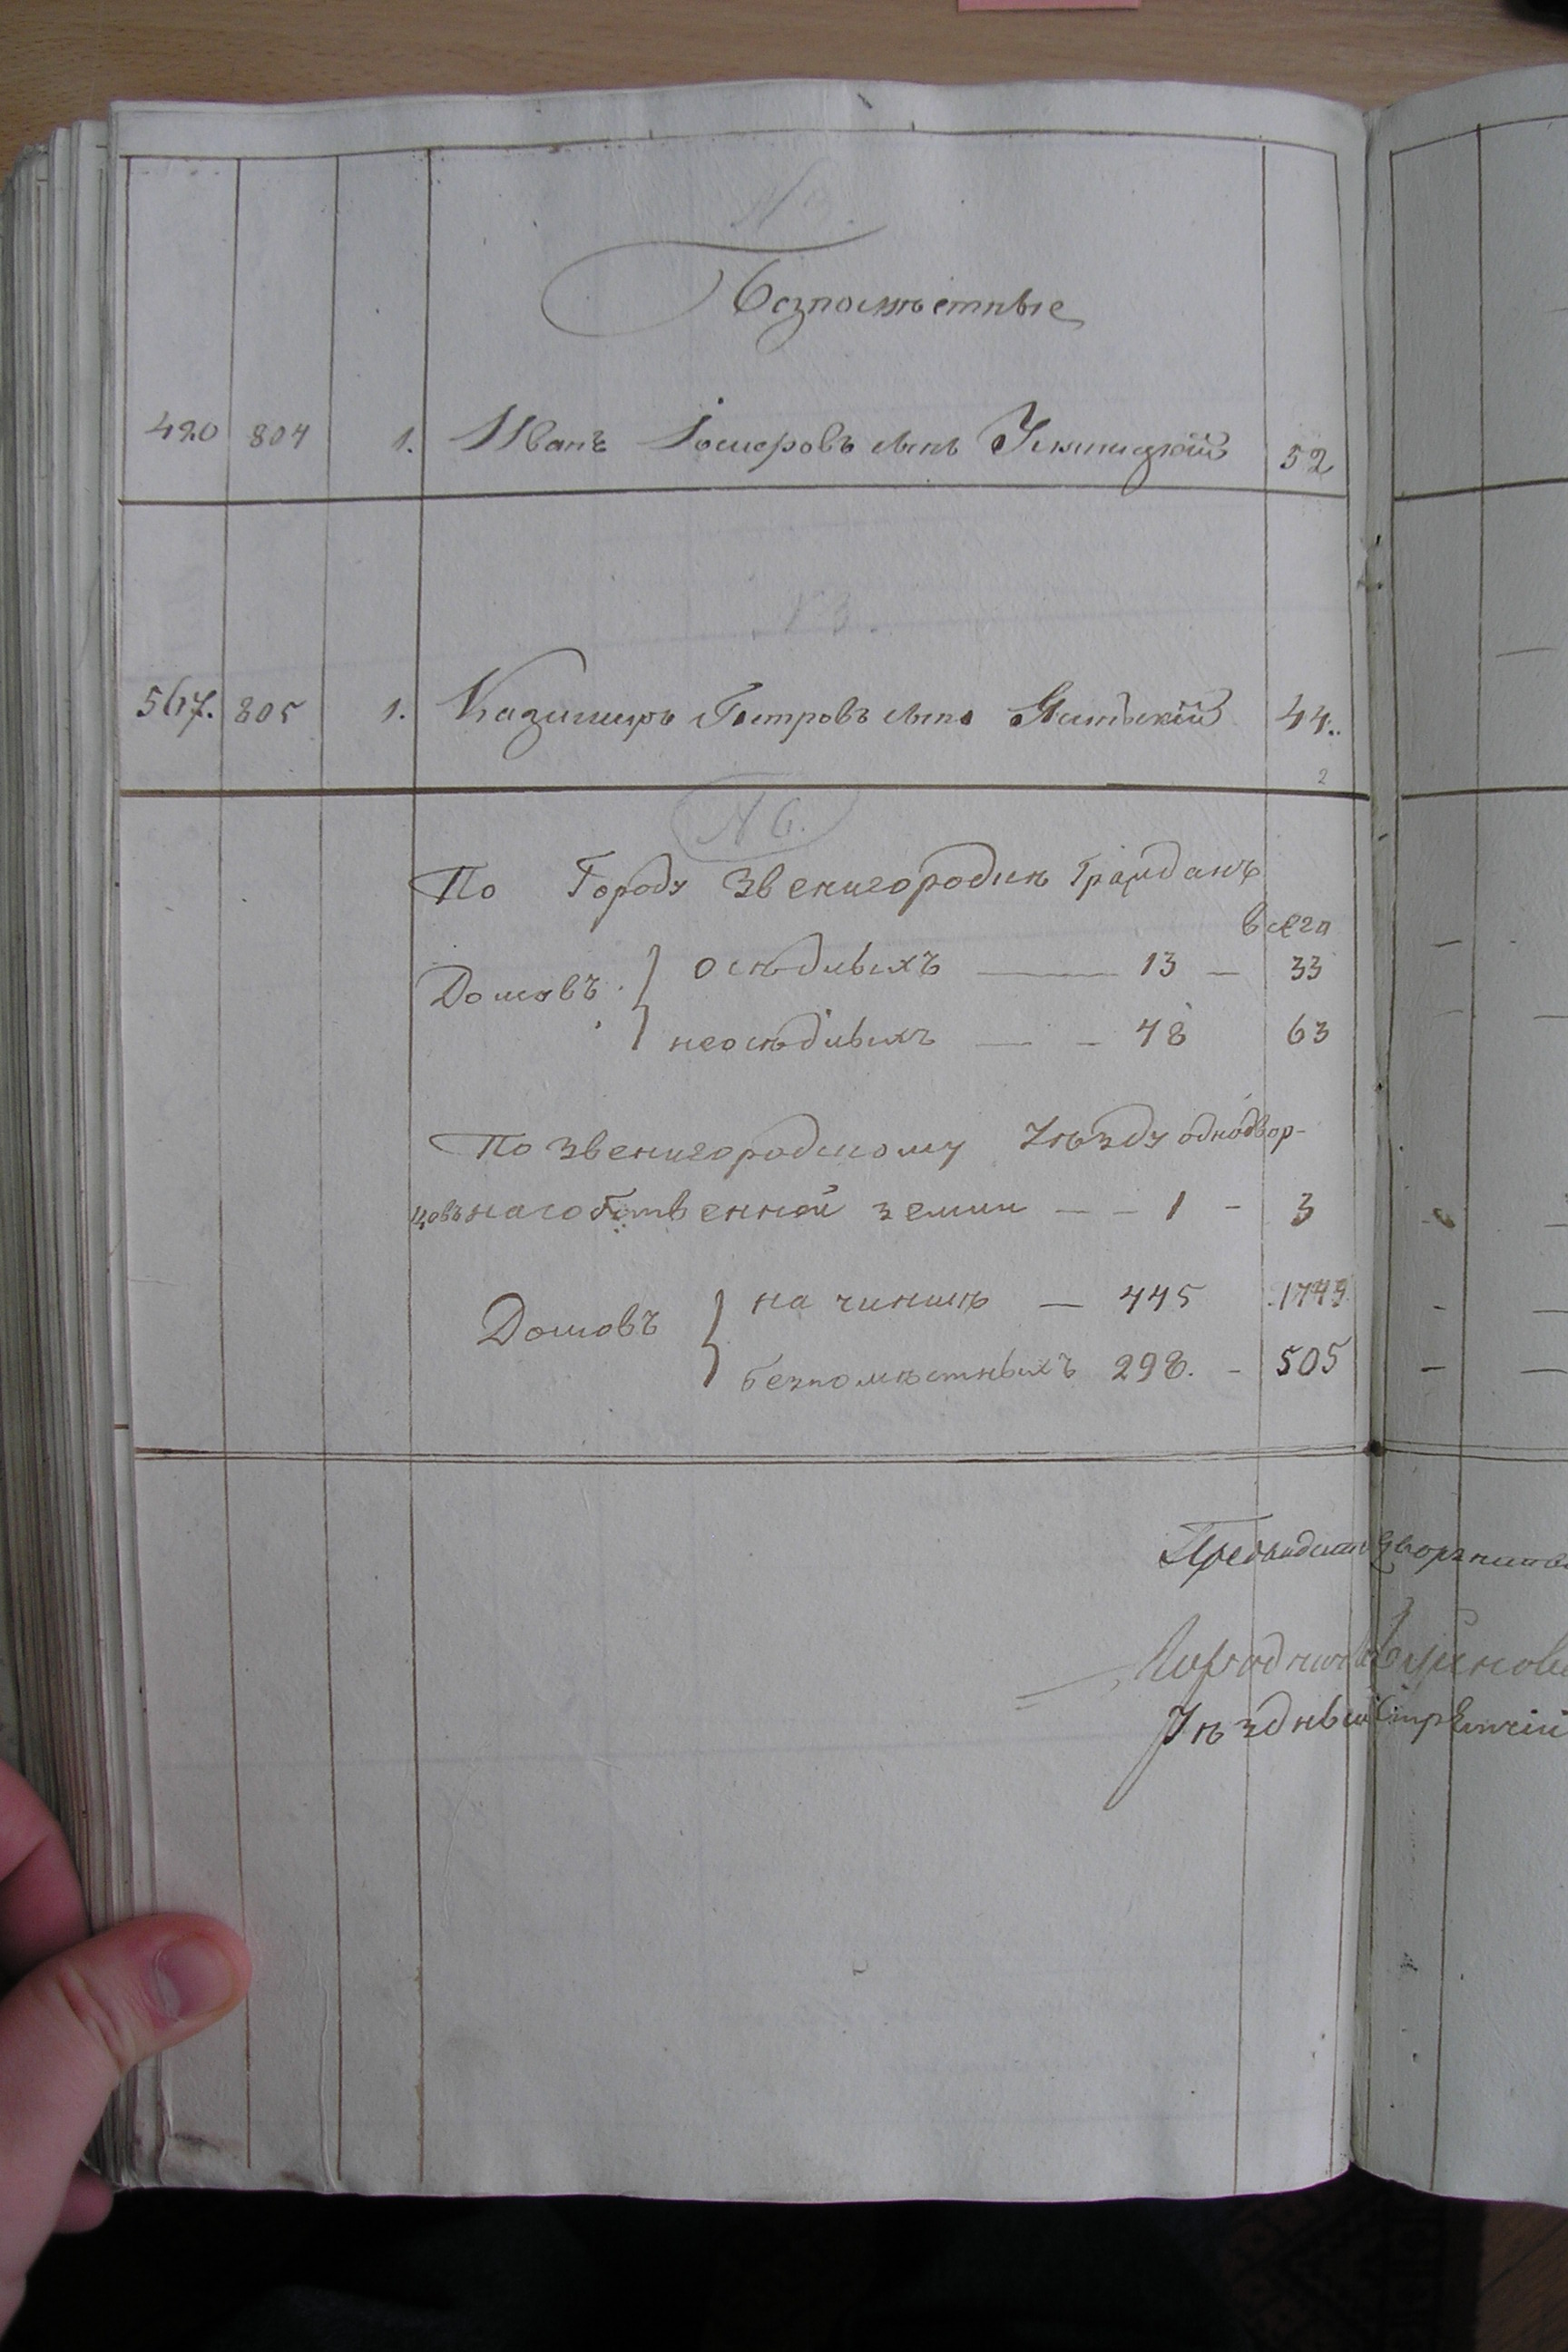 Безпомѣстные
420 804 1. Иванъ сынъ 52
567. 805 1. Казимиръ Петровъ сынъ 44.
2
N 6.
По Городу Звенигородкѣ Гражданъ
всего
Домовъ осѣдлыхъ — 13 — 33
неосѣдлыхъ — — 48 63
По Звенигородскому Уѣзду однодвор-
цовъ на собственной земли — — 1 — 3
Домовъ на чиншѣ — 445 1749
безпомѣстныхъ 298. — 505
Уѣздный Стряпчій